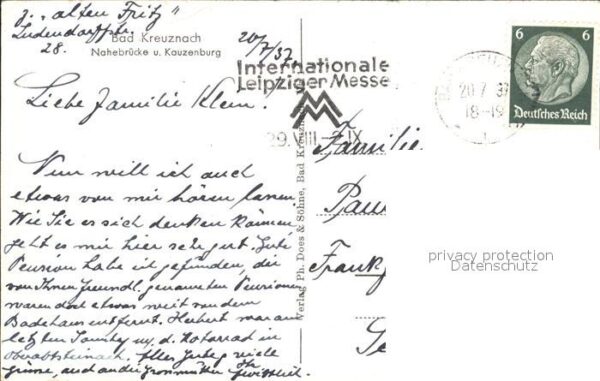 z. "alten Fritz"
Ludendorffstr.
28.
Bad Kreuznach
Nahebrücke u. Kauzenburg
20/7/37.
Internationale
Leipziger Messe
29.VIII.-2.IX.
20.7.37
18-19
6 6
Deutsches Reich
Liebe Familie Klein!
Nun will ich auch
etwas von mir hören lassen.
Wie Sie es sich denken können,
geht es mir hier sehr gut. Gute
Pension habe ich gefunden, die
von Ihnen freundl. genannten Pensionen
waren doch etwas weit von dem
Badehaus entfernt. Herbert war am
letzten Sonntag m. d. Motorrad in
Oberabtsteinach. Alles Gute viele
Grüsse, auch an die Grossmutter Ihr
Verlag Ph. Does & Söhne, Bad Kreuznach
Familie
Paul
Frank
privacy protection
Datenschutz